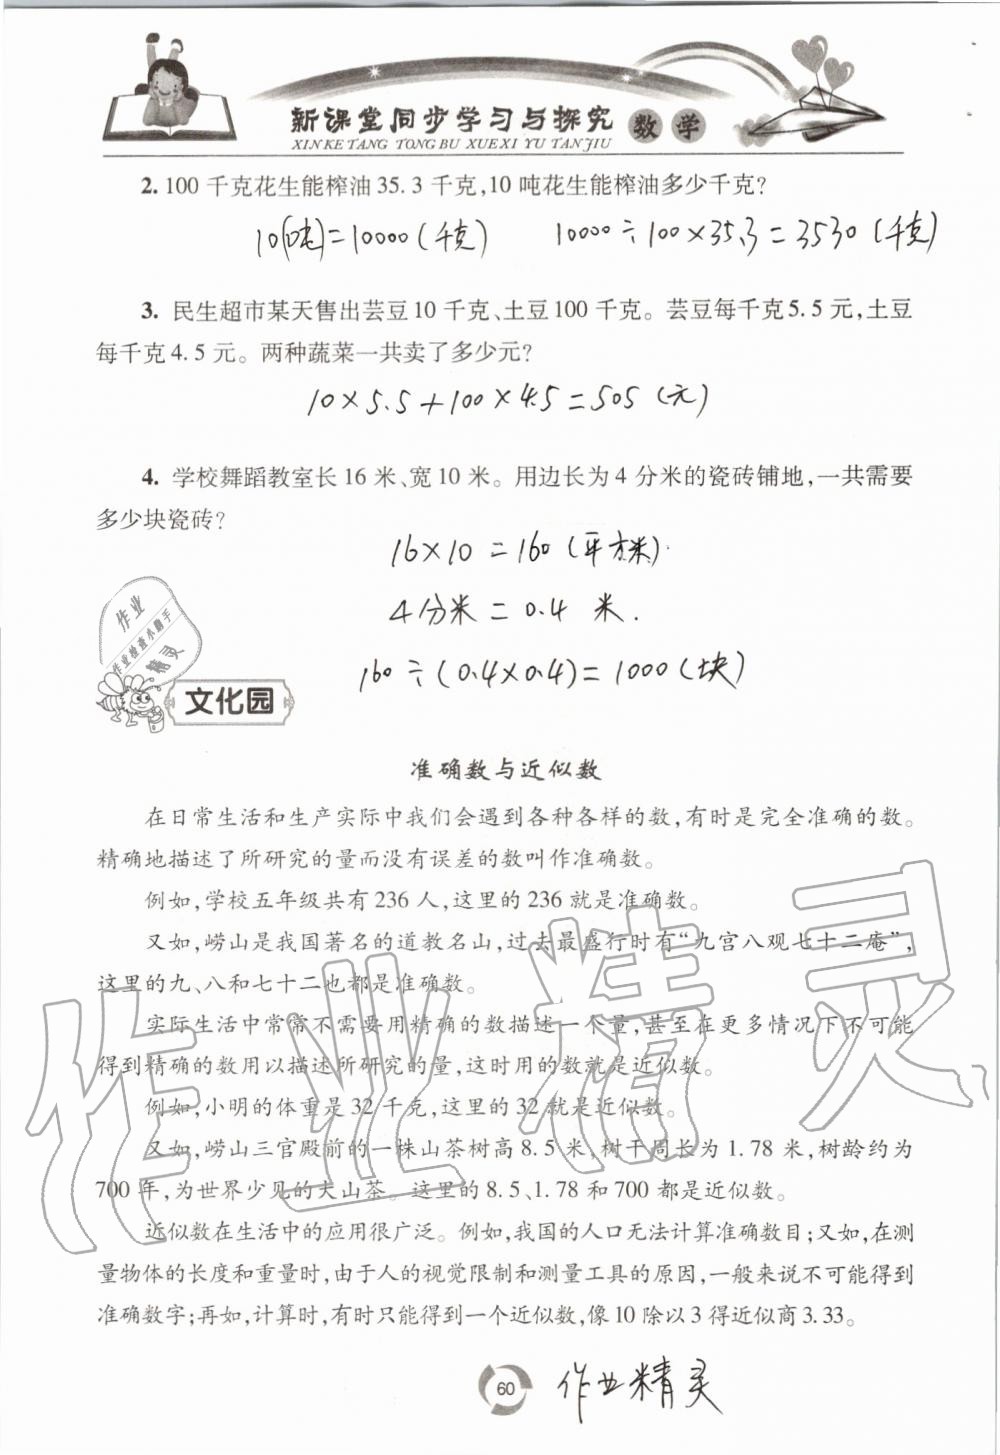 新课堂同步学习与探究 数学
XIN KE TANG TONG BU XUE XI YU TAN JIU
2. 100 千克花生能榨油 35.3 千克,10 吨花生能榨油多少千克?
10(吨)=10000(千克) 10000÷100×35.3=3530(千克)
3. 民生超市某天售出芸豆 10 千克、土豆 100 千克。芸豆每千克 5.5 元,土豆
每千克 4.5 元。两种蔬菜一共卖了多少元?
10×5.5+100×4.5=505(元)
4. 学校舞蹈教室长 16 米、宽 10 米。用边长为 4 分米的瓷砖铺地,一共需要
多少块瓷砖?
16×10=160(平方米)
4分米=0.4 米.
160÷(0.4×0.4)=1000(块)
作业
作业检查小助手
精灵
文化园
准确数与近似数
在日常生活和生产实际中我们会遇到各种各样的数,有时是完全准确的数。
精确地描述了所研究的量而没有误差的数叫作准确数。
例如,学校五年级共有 236 人,这里的 236 就是准确数。
又如,崂山是我国著名的道教名山,过去最盛行时有“九宫八观七十二庵”,
这里的九、八和七十二也都是准确数。
实际生活中常常不需要用精确的数描述一个量,甚至在更多情况下不可能
得到精确的数用以描述所研究的量,这时用的数就是近似数。
例如,小明的体重是 32 千克,这里的 32 就是近似数。
又如,崂山三官殿前的一株山茶树高 8.5 米,树干周长为 1.78 米,树龄约为
700 年,为世界少见的大山茶。这里的 8.5、1.78 和 700 都是近似数。
近似数在生活中的应用很广泛。例如,我国的人口无法计算准确数目;又如,在测
量物体的长度和重量时,由于人的视觉限制和测量工具的原因,一般来说不可能得到
准确数字;再如,计算时,有时只能得到一个近似数,像 10 除以 3 得近似商 3.33。
作业精灵
60
作业精灵